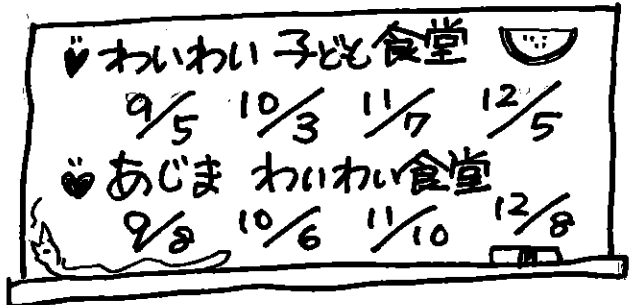 わいわい 子ども食堂
9/5 10/3 11/7 12/5
あじま わいわい食堂
9/8 10/6 11/10 12/8